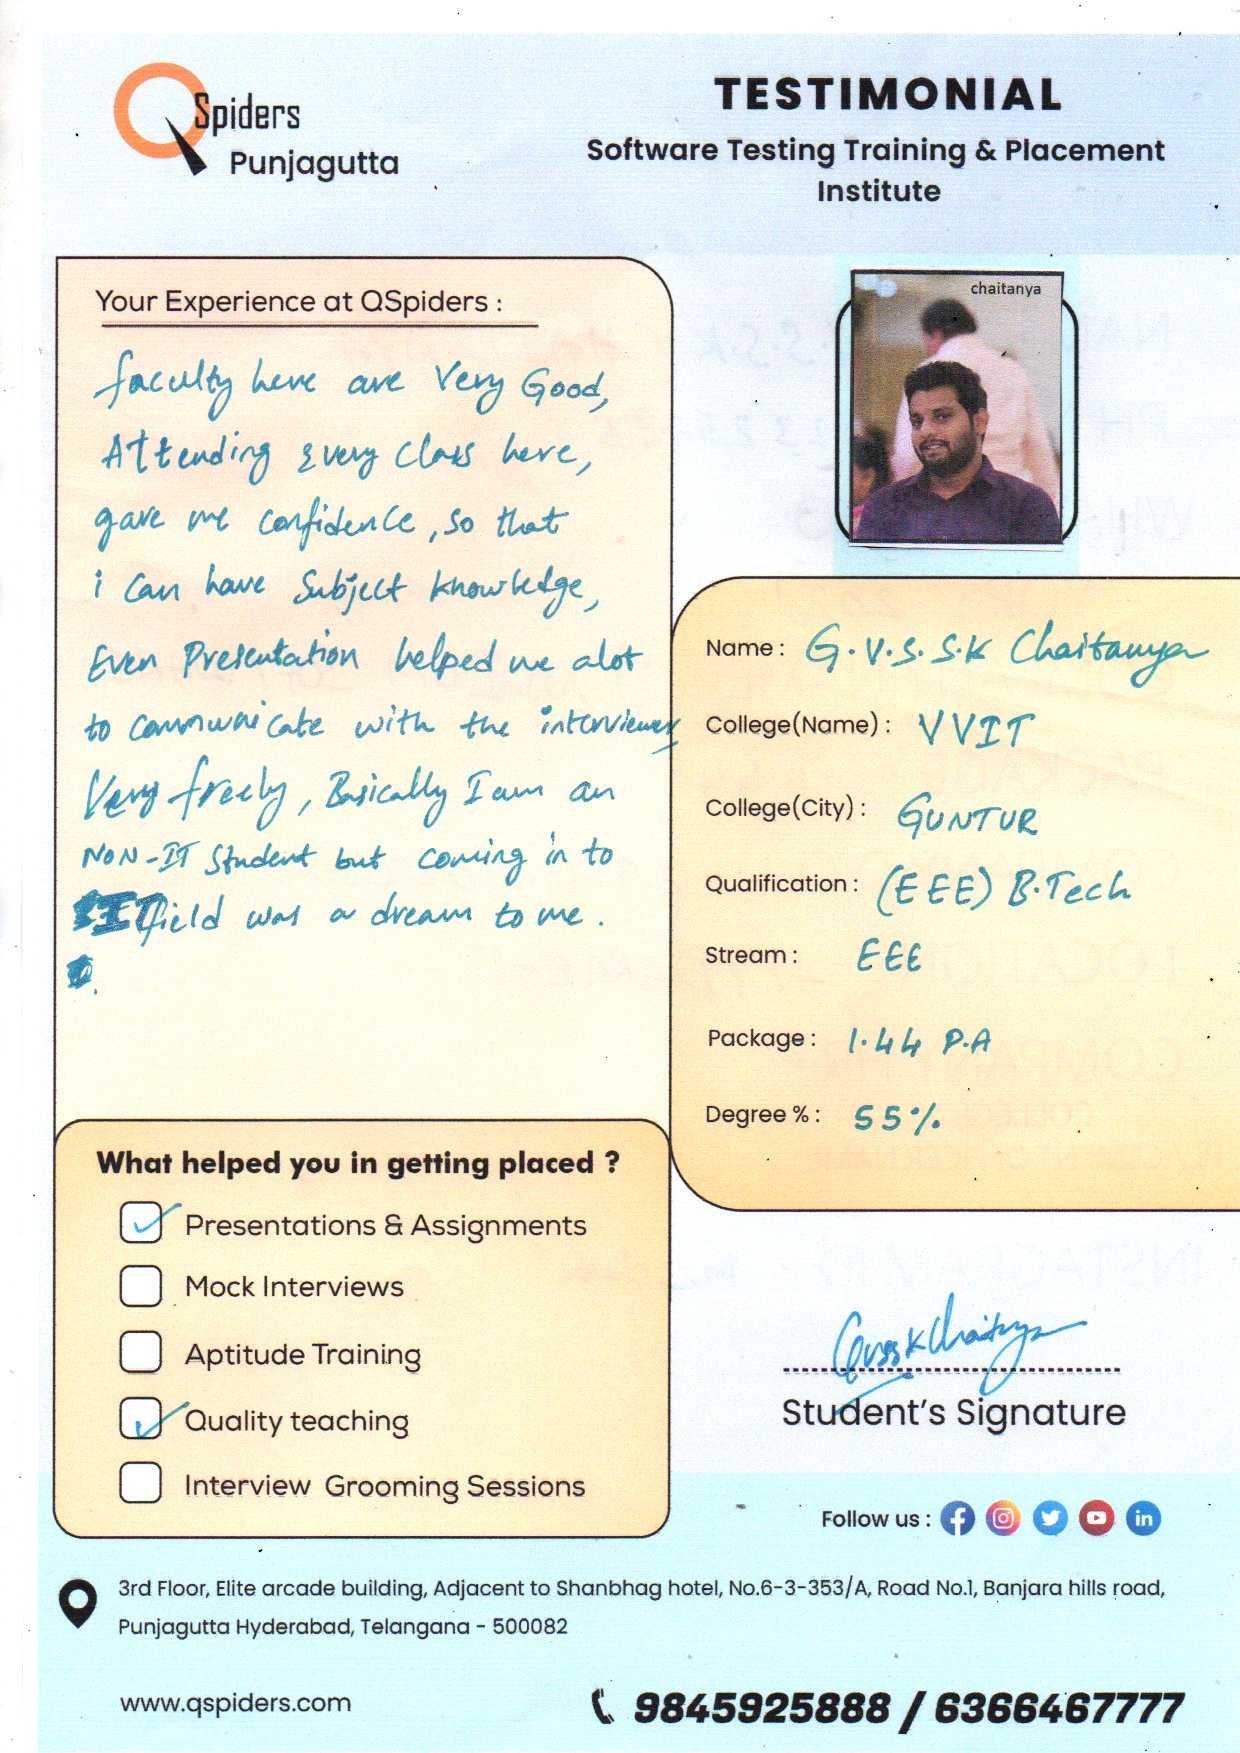 QSpiders
Punjagutta
TESTIMONIAL
Software Testing Training & Placement
Institute
Your Experience at QSpiders :
faculty here are Very Good,
Attending Every Class here,
gave me confidence, so that
i Can have Subject Knowledge,
Even Presentation helped me alot
to communicate with the interviewer
Very freely, Basically I am an
NON-IT Student but coming in to
IT field was a dream to me.
chaitanya
Name : G.V.S.S.K Chaitanya
College(Name) : VVIT
College(City) : GUNTUR
Qualification : (EEE) B.Tech
Stream : EEE
Package : 1.44 P.A
Degree % : 55%
What helped you in getting placed ?
Presentations & Assignments
Mock Interviews
Aptitude Training
Quality teaching
Interview Grooming Sessions
GVSSK Chaitanya
Student's Signature
Follow us :
3rd Floor, Elite arcade building, Adjacent to Shanbhag hotel, No.6-3-353/A, Road No.1, Banjara hills road,
Punjagutta Hyderabad, Telangana - 500082
www.qspiders.com
9845925888 / 6366467777